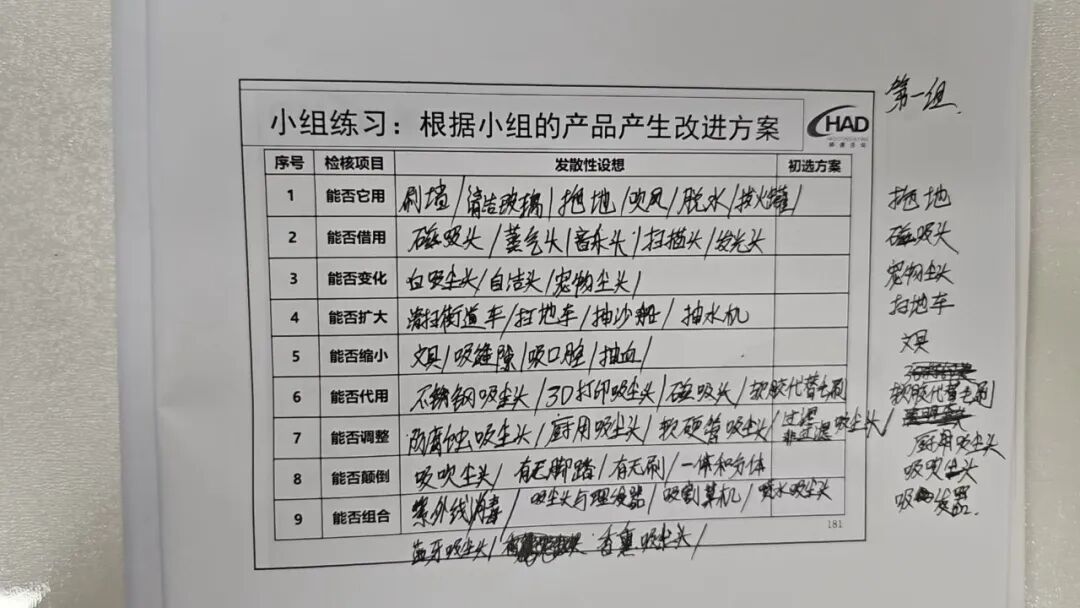 第一组
小组练习：根据小组的产品产生改进方案
CHAD
序号 检核项目 发散性设想 初选方案
1 能否它用 刷墙/清洁玻璃/拖地/吹风/脱水/拔火罐/ 拖地
2 能否借用 磁吸头/蒸气头/音乐头/扫描头/发光头 磁吸头
3 能否变化 白吸尘头/自洁头/宠物尘头/ 宠物尘头
4 能否扩大 清扫街道车/扫地车/抽沙船/抽水机 扫地车
5 能否缩小 文具/吸缝隙/吸口腔/抽血/ 文具
6 能否代用 不锈钢吸尘头/3D打印吸尘头/磁吸头/软胶代替毛刷 软胶代替毛刷
7 能否调整 防腐蚀吸尘头/厨用吸尘头/软硬管吸尘头/过滤非过滤吸尘头/ 厨用吸尘头
8 能否颠倒 吸吹尘头/有无脚踏/有无刷/一体和分体 吸吹尘头
9 能否组合 紫外线消毒/吸尘头与理发器/吸割草机/喷水吸尘头
蓝牙吸尘头/ 香薰吸尘头/
181